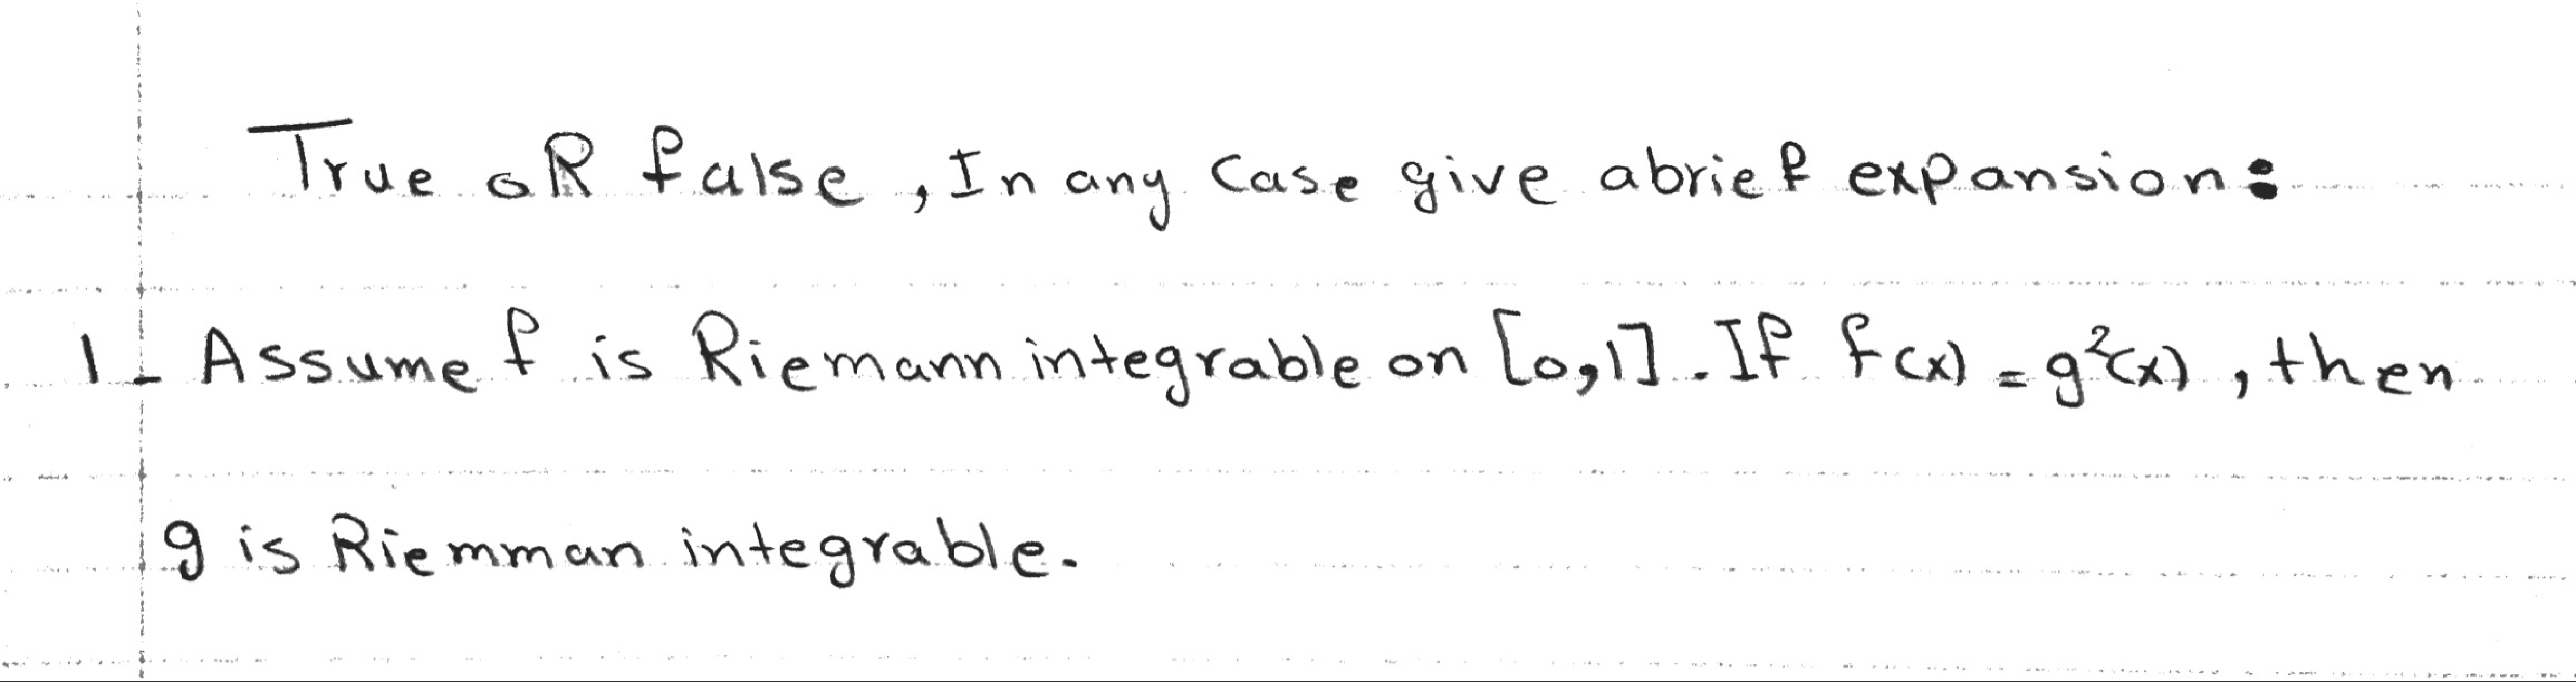 True oR false, In any case give abrief expansion:
1- Assume f is Riemann integrable on [0,1]. If f(x) = g²(x), then
g is Riemman integrable.